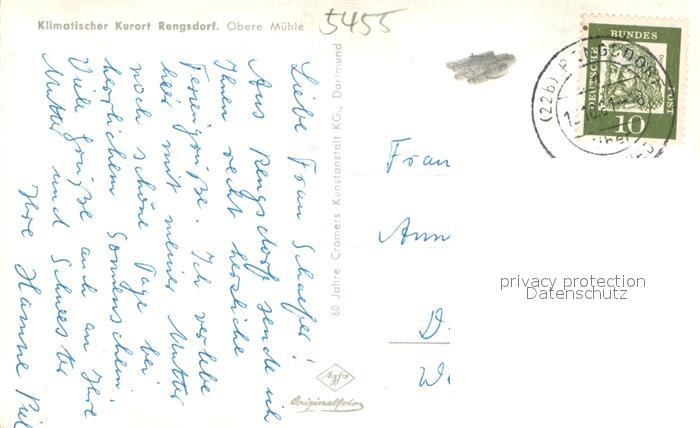 Klimatischer Kurort Rengsdorf. Obere Mühle
5455
Liebe Frau Schaefer!
Aus Rengsdorf sende ich
Ihnen recht herzliche
Feriengrüße. Ich verlebe
hier mit meiner Mutter
noch schöne Tage bei
herrlichem Sonnenschein.
Viele Grüße auch an Ihre
Mutter und Schwester
Ihre Hanne
60 Jahre Cramers Kunstanstalt KG., Dortmund
Agfa
Originalfoto
DEUTSCHE BUNDESPOST
10
(22b) RENGSDORF
Frau
Ann
D.
W
privacy protection
Datenschutz